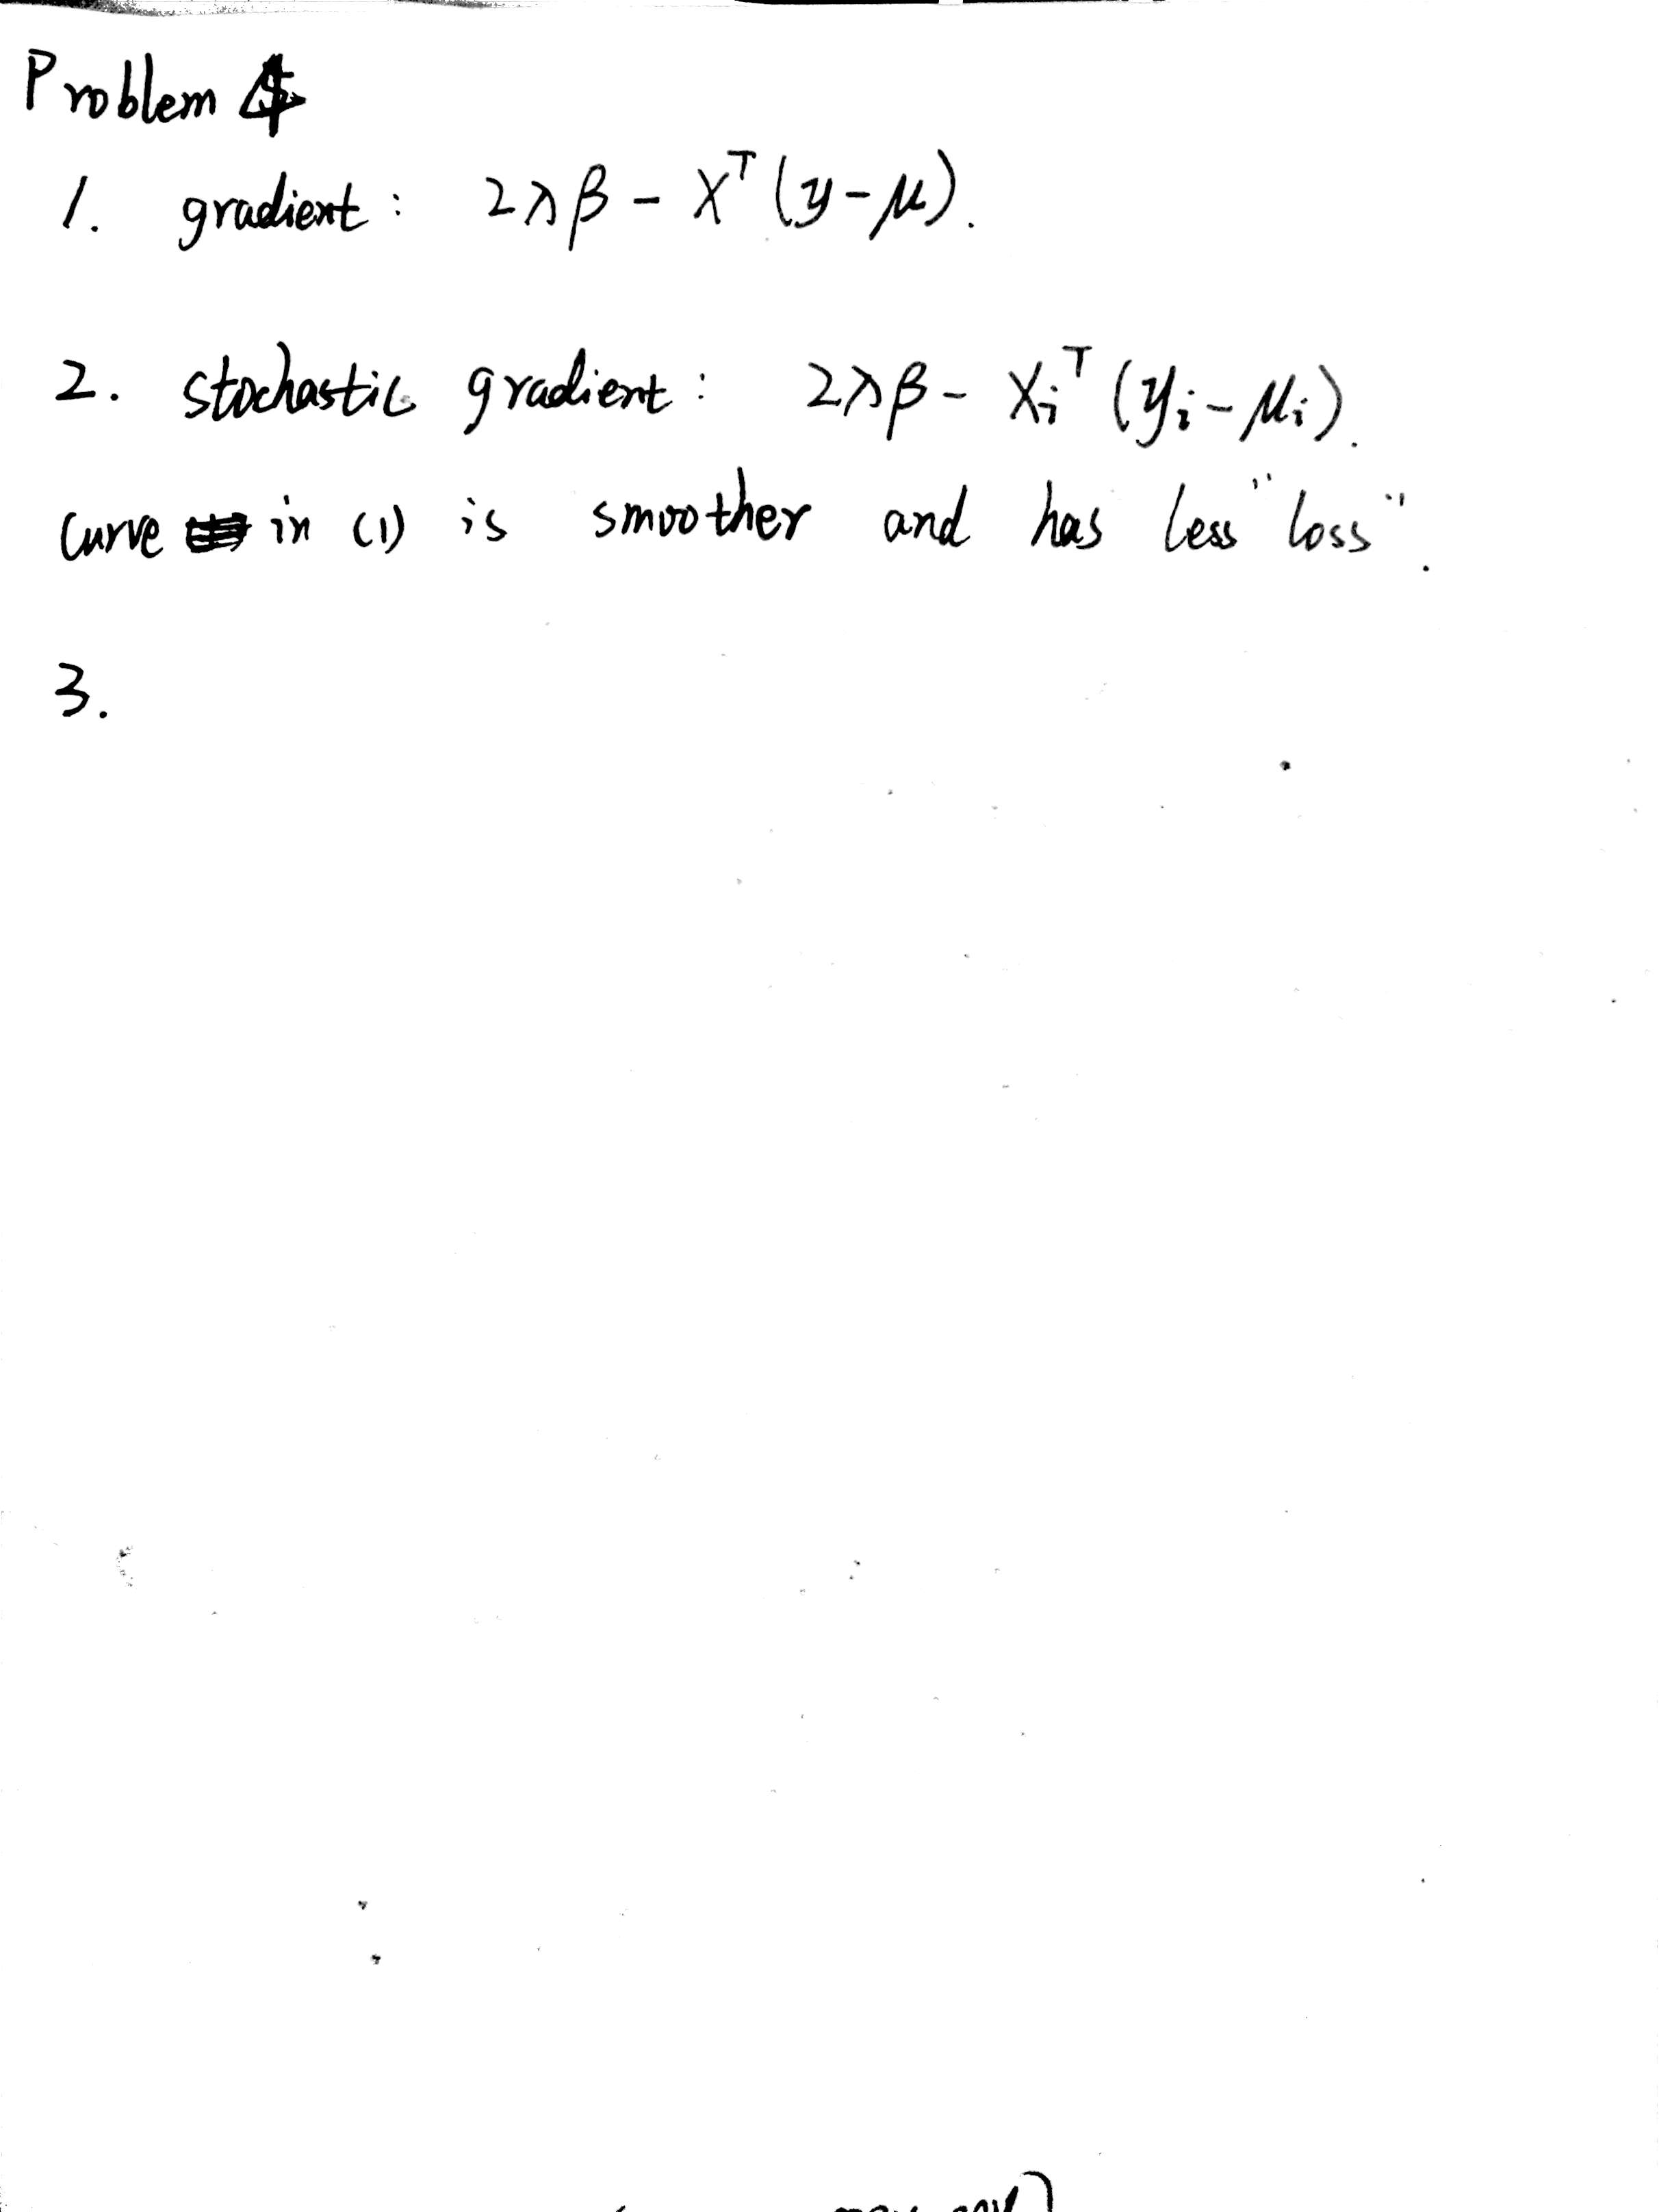 Problem 4
1. gradient: 2λβ - X^T (y-μ).
2. stochastic gradient: 2λβ - X_i^T (y_i - μ_i).
Curve in (1) is smoother and has less "loss".
3.